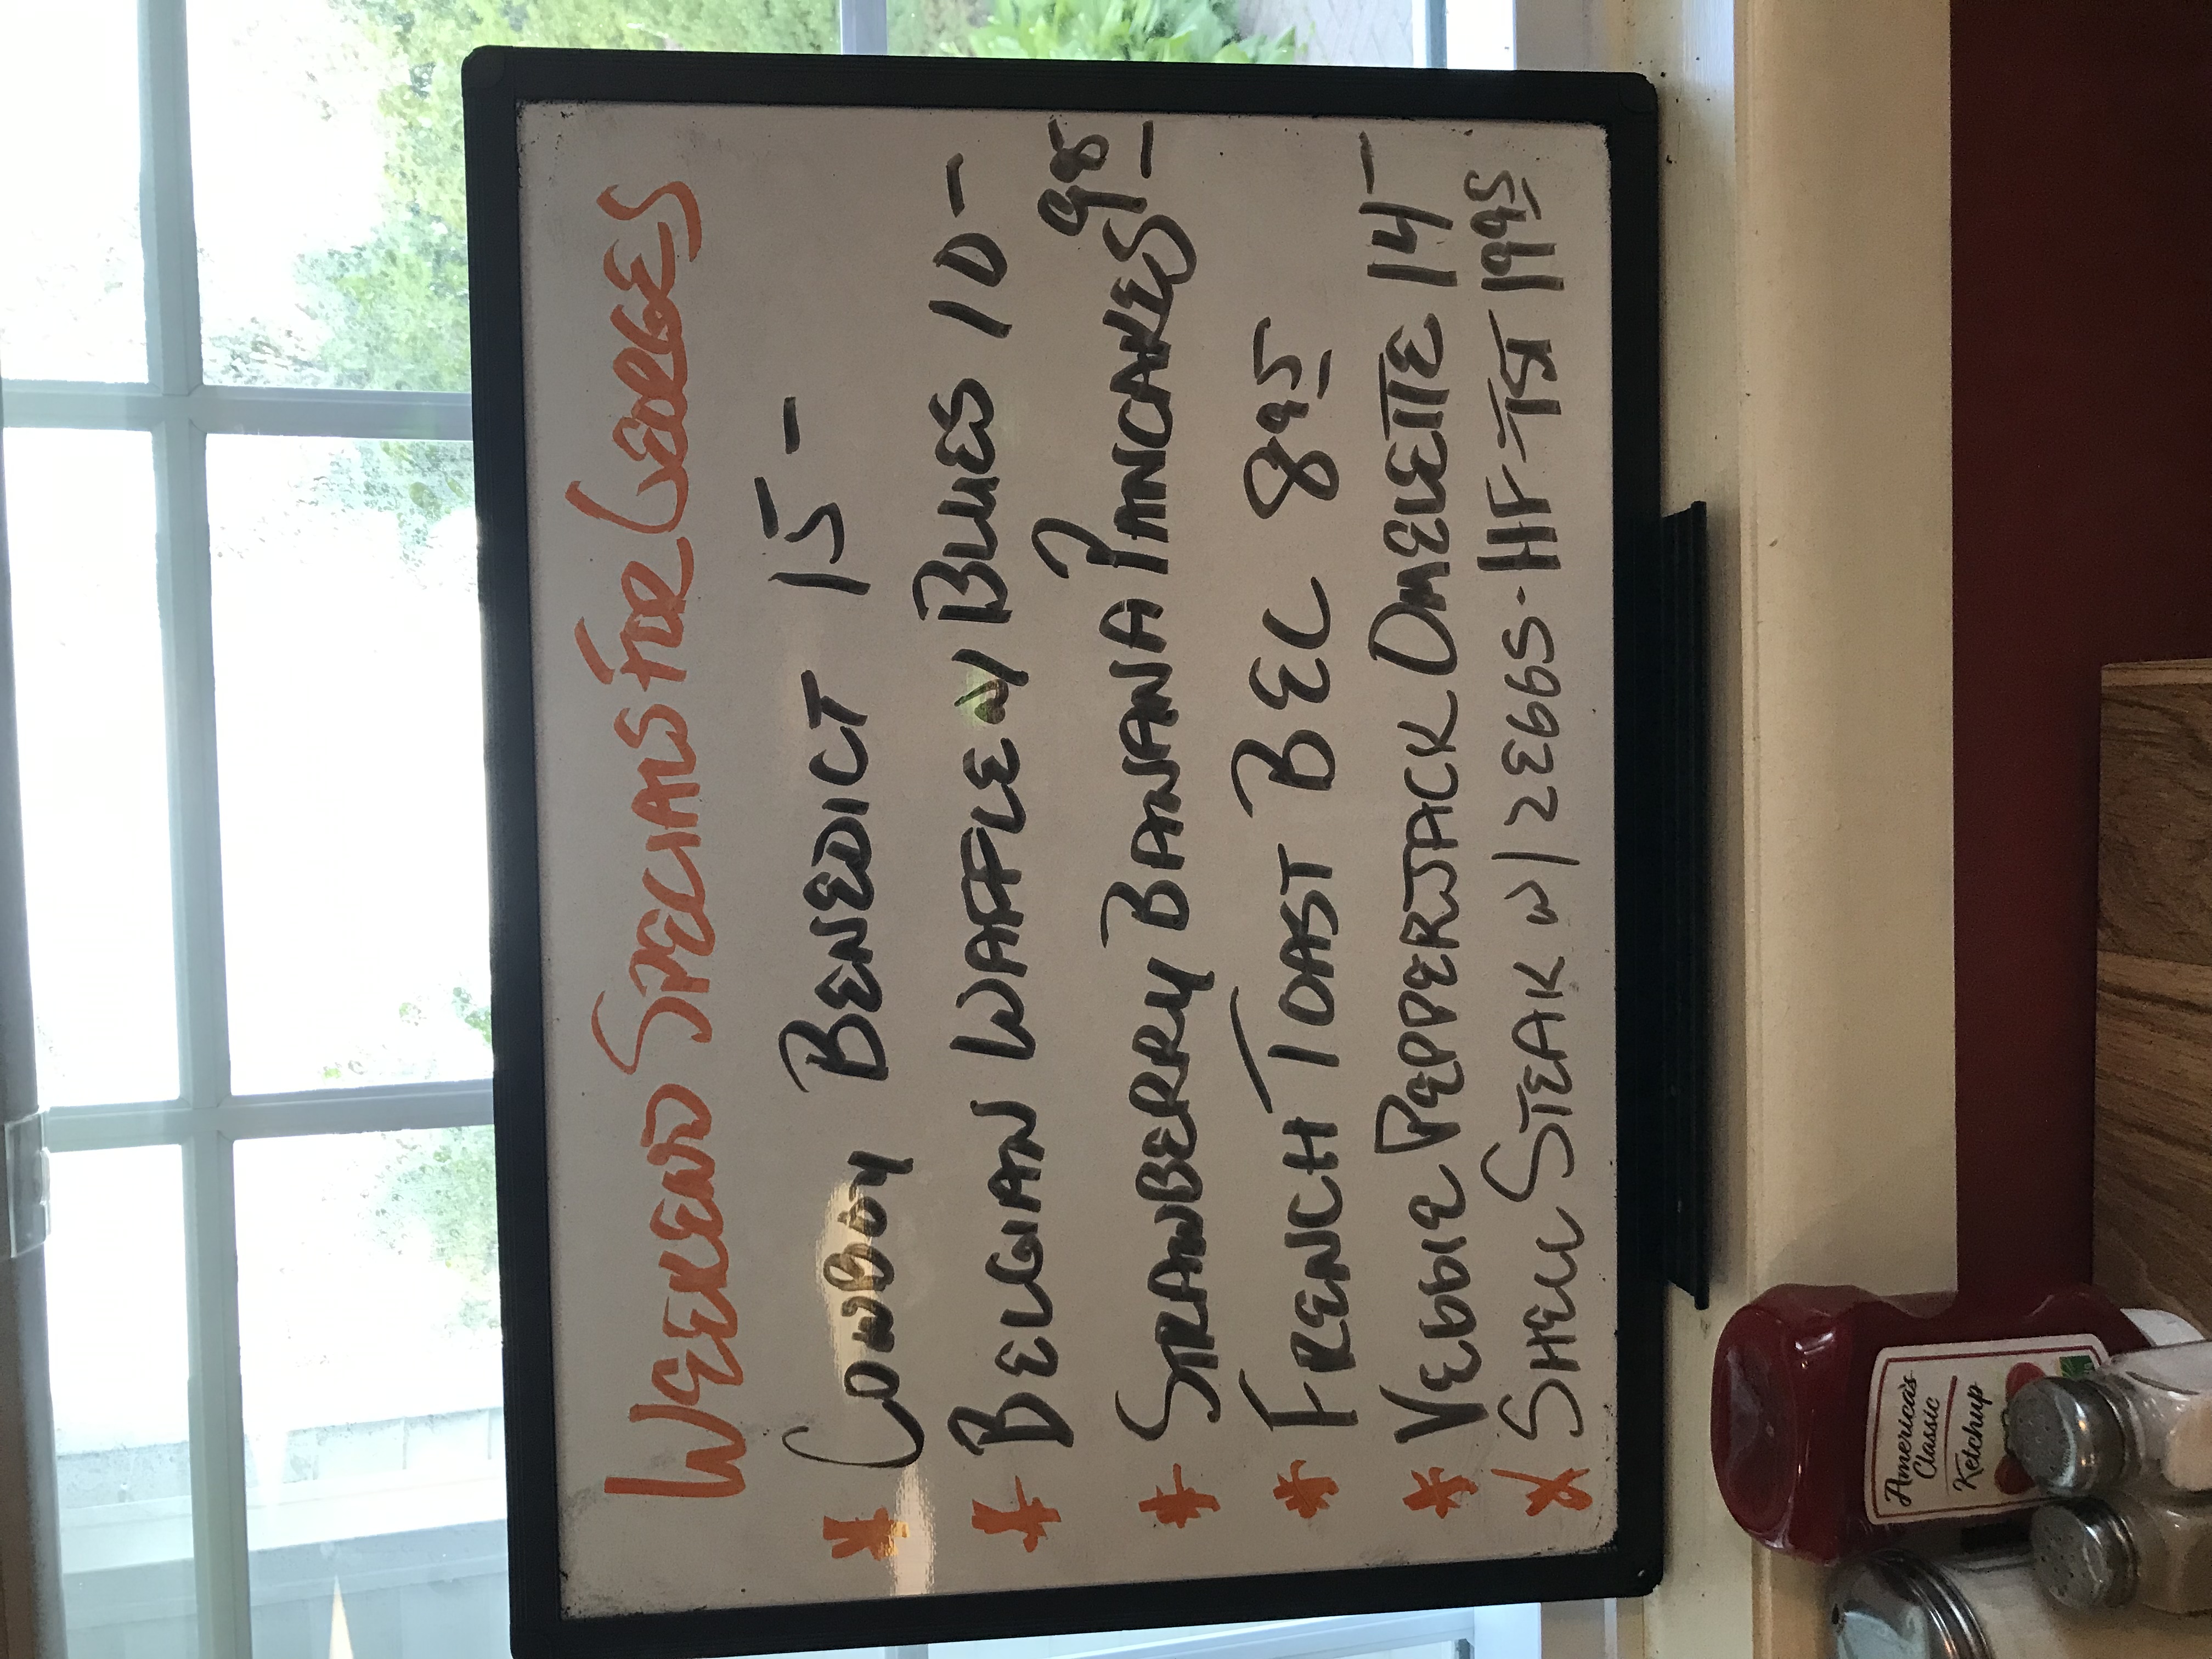 WEEKEND SPECIALS FOR GEORGES
* COWBOY BENEDICT 15-
* BELGIAN WAFFLE W/ BLUES 10-
* STRAWBERRY BANANA PANCAKES 9 95
* FRENCH TOAST BEC 8 95
* VEGGIE PEPPERJACK OMELETTE 14-
* SHELL STEAK W/ 2 EGGS-HF-TST 19 95
America's
Classic
Ketchup